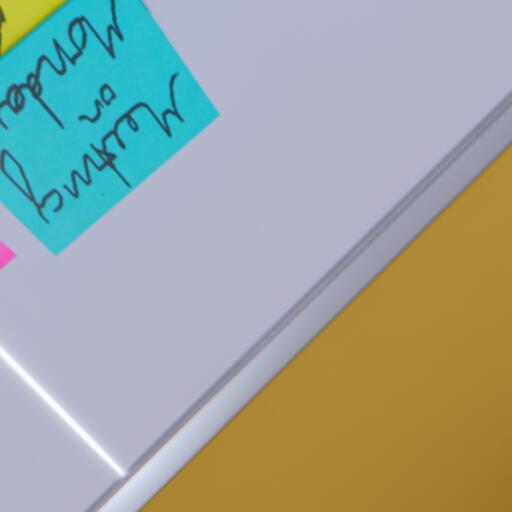 Meeting
on
Monday